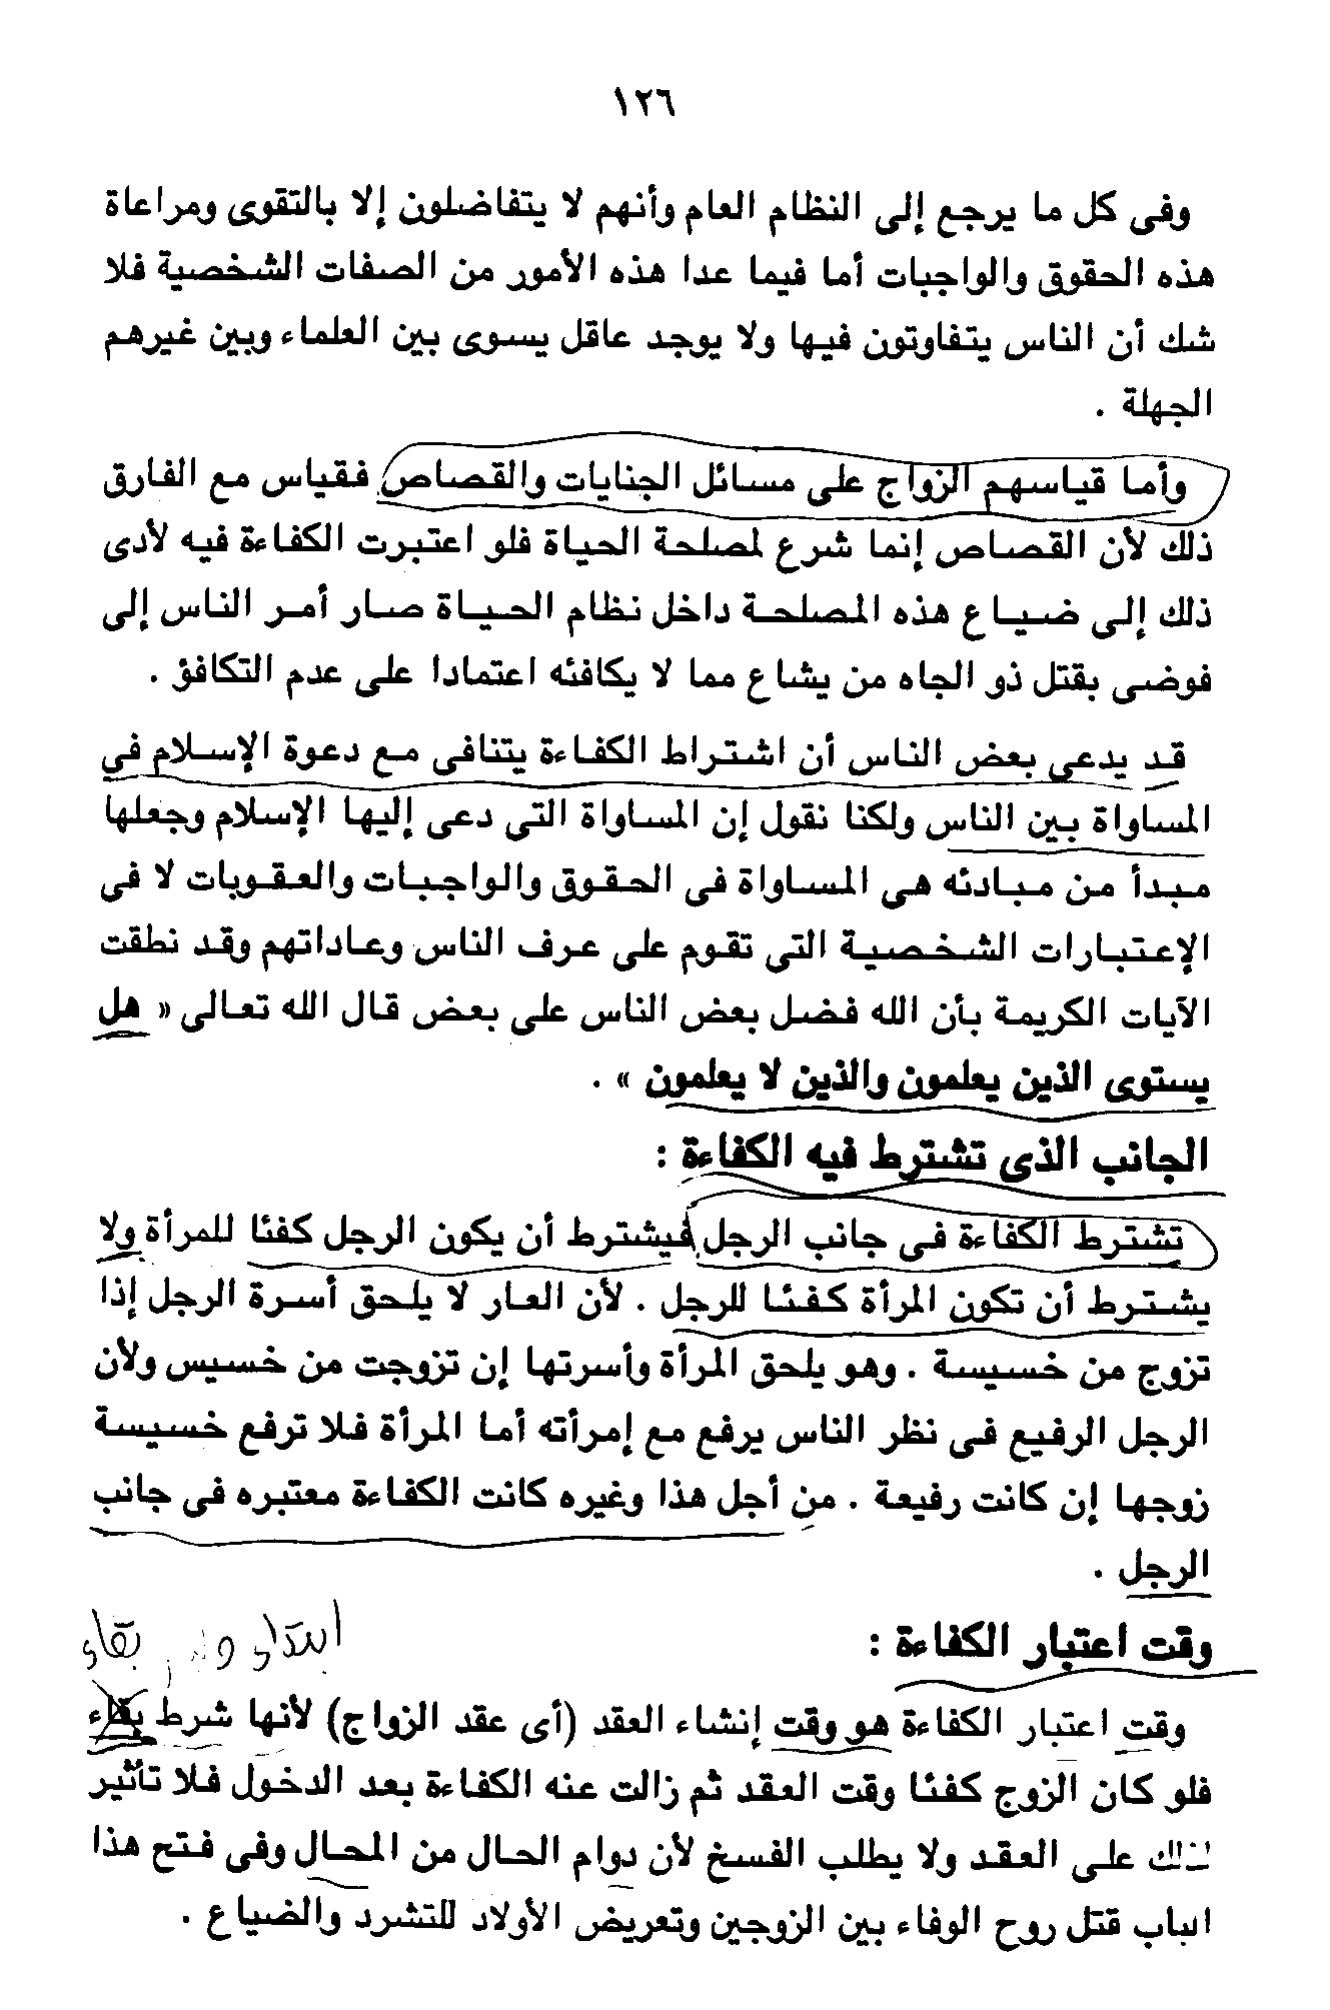 ١٢٦
وفى كل ما يرجع إلى النظام العام وأنهم لا يتفاضلون إلا بالتقوى ومراعاة
هذه الحقوق والواجبات أما فيما عدا هذه الأمور من الصفات الشخصية فلا
شك أن الناس يتفاوتون فيها ولا يوجد عاقل يسوى بين العلماء وبين غيرهم
الجهلة .
وأما قياسهم الزواج على مسائل الجنايات والقصاص فقياس مع الفارق
ذلك لأن القصاص إنما شرع لمصلحة الحياة فلو اعتبرت الكفاءة فيه لأدى
ذلك إلى ضياع هذه المصلحة داخل نظام الحياة صار أمر الناس إلى
فوضى بقتل ذو الجاه من يشاع مما لا يكافئه اعتمادا على عدم التكافؤ .
قد يدعى بعض الناس أن اشتراط الكفاءة يتنافى مع دعوة الإسلام فى
المساواة بين الناس ولكنا نقول إن المساواة التى دعى إليها الإسلام وجعلها
مبدأ من مبادئه هى المساواة فى الحقوق والواجبات والعقوبات لا فى
الإعتبارات الشخصية التى تقوم على عرف الناس وعاداتهم وقد نطقت
الآيات الكريمة بأن الله فضل بعض الناس على بعض قال الله تعالى « هل
يستوى الذين يعلمون والذين لا يعلمون » .
الجانب الذى تشترط فيه الكفاءة :
تشترط الكفاءة فى جانب الرجل فيشترط أن يكون الرجل كفئا للمرأة ولا
يشترط أن تكون المرأة كفئا للرجل . لأن العار لا يلحق أسرة الرجل إذا
تزوج من خسيسة . وهو يلحق المرأة وأسرتها إن تزوجت من خسيس ولأن
الرجل الرفيع فى نظر الناس يرفع مع إمرأته أما المرأة فلا ترفع خسيسة
زوجها إن كانت رفيعة . من أجل هذا وغيره كانت الكفاءة معتبره فى جانب
الرجل .
وقت اعتبار الكفاءة :
ابتداء بقاء
وقت اعتبار الكفاءة هو وقت إنشاء العقد (أى عقد الزواج) لأنها شرط بقاء
فلو كان الزوج كفئا وقت العقد ثم زالت عنه الكفاءة بعد الدخول فلا تأثير
لذلك على العقد ولا يطلب الفسخ لأن دوام الحال من المحال وفى فتح هذا
الباب قتل روح الوفاء بين الزوجين وتعريض الأولاد للتشرد والضياع .